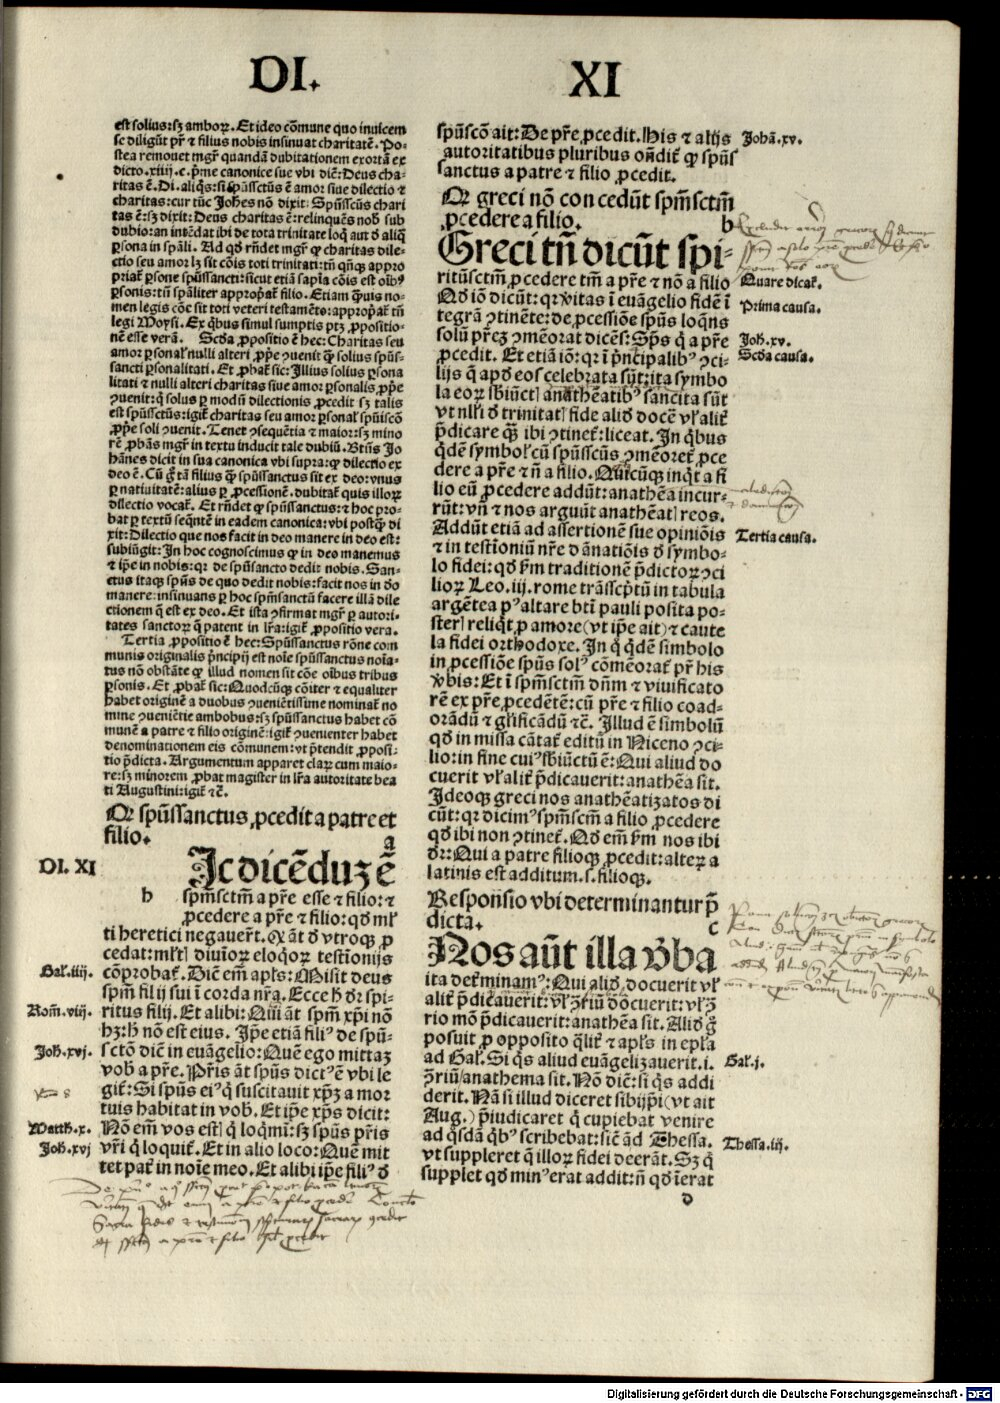 DI.
XI
est solius: sꝫ amboꝝ. Et ideo cōmune quo inuicem
se diligūt pr̄ ⁊ filius nobis insinuat charitatē. Po-
stea remouet mgr̄ quandā dubitationem exortā ex
dicto .xiiij. c. p̄me canonice sue vbi dicit: Deus cha-
charitas: cur tūc Johēs nō dixit: Spūssctūs chari
tas ē: sꝫ dixit: Deus charitas ē: relinquēs nob̄ sub
dubio: an intēdat ibi de tota trinitate loq̄ aut d̄ aliq̄
ꝑsona in sp̄ali. Ad qd̄ rn̄det mgr̄ ꝙ charitas dile-
ctio seu amor lꝫ sit cōis toti trinitati: tn̄ qn̄qꝫ appro
priat̄ ꝑsone spūssancti: sicut etiā sapīa cōis est oībꝰ
ꝑsonis: tn̄ sp̄aliter appropat̄ filio. Etiam ꝙuis no-
men legis cōe sit toti veteri testamēto: appropat̄ tn̄
legi Moysi. Ex q̄bus simul sumptis ptꝫ ꝓpositio-
nē esse verā. Scd̄a ꝓpositio ē hec: Charitas seu
amor ꝑsonal̄ nulli alteri ꝓpe ꝯuenit ꝙ̄ solius spūs-
sancti ꝑsonalitati. Et ꝓbat̄ sic: Illius solius ꝑsona
litati ⁊ nulli alteri charitas siue amor ꝑsonalis ꝓpe
ꝯuenit: q̄ solus ꝑ modū dilectionis ꝓcedit sꝫ talis
est spūssctūs: igit̄ charitas seu amor ꝑsonal̄ spūiscō
ꝓpe soli ꝯuenit. Tenet ꝯsequētia ⁊ maior: sꝫ mino
rē ꝓbās mgr̄ in textu inducit tale dubiū. Btūs Jo
hānes dicit in sua canonica vbi supra: ꝙ dilectio ex
deo ē. Cū g̊ tā filius ꝙ̄ spūssanctus sit ex deo: vnus
ꝑ natiuitatē: alius ꝑ ꝓcessionē. dubitat̄ quis illoꝝ
dilectio vocat̄. Et rn̄det ꝙ spūssanctus: ⁊ hoc pro-
bat ꝑ textū seqn̄tē in eadem canonica: vbi postꝙ̄ di
xit: Dilectio que nos facit in deo manere in deo est:
subiūgit: In hoc cognoscimus ꝙ in deo manemus
⁊ ip̄e in nobis: qꝛ de spūsancto dedit nobis. San-
ctus itaqꝫ spūs de quo dedit nobis: facit nos in dō
manere: insinuans ꝑ hoc spm̄sanctū facere illā dile
ctionem q̄ est ex deo. Et ista ꝯfirmat mgr̄ ꝑ autori-
tates sanctoꝝ q̄ patent in lr̄a: igit̄ ꝓpositio vera.
Tertia ꝓpositio ē hec: Spūssanctus rōne com
munis originalis p̄ncipij est noīe spūssanctus noīa-
tus nō obstāte ꝙ illud nomen sit cōe oībus tribus
ꝑsonis. Et ꝓbat̄ sic: Quodcūqꝫ cōiter ⁊ equaliter
habet originē a duobus ꝯueniētissime nominat̄ no
mine ꝯueniētie ambobus: sꝫ spūssanctus habet cō
munē a patre ⁊ filio originē: igit̄ ꝯuenienter habet
denominationem eis cōmunem: vt p̄tendit ꝓposi-
tio p̄dicta. Argumentum apparet claꝝ cum maio-
re: sꝫ minorem ꝓbat magister in lr̄a autoritate bea
ti Augustini: igit̄ ⁊c̄.
Ꝙ spūssanctus ꝓcedit a patre et
filio.
a
DI. XI
Ic dicēduꝫ ē
h
spm̄sctm̄ a pr̄e esse ⁊ filio: ⁊
ꝓcedere a pr̄e ⁊ filio: qd̄ ml̄
ti heretici negauer̄t. Ꝙ āt d̄ vtroqꝫ ꝓ
cedat: ml̄t diuinoꝝ eloqoꝝ testionijs
Gal̄. iiij.
cōprobat̄. Dic̄ em̄ apl̄s: Misit deus
spm̄ filij sui ī corda nr̄a. Ecce h̄ dr̄ spi-
Rom̄. viij.
ritus filij. Et alibi: Qui āt spm̄ xp̄i nō
hꝫ: h̄ nō est eius. Ip̄e etiā filiꝰ de spū-
Joh̄. xvj.
sctō dic̄ in euāgelio: Quē ego mittaꝫ
vob̄ a pr̄e. Pr̄is āt spūs dictꝰ ē vbi le
git̄: Si spūs eiꝰ q̄ suscitauit xp̄ꝫ a mor
8
tuis habitat in vob̄. Et ip̄e xp̄s dicit:
Matth. x.
Nō em̄ vos est q̄ loqm̄i: sꝫ spūs pr̄is
Joh̄. xvj
vr̄i q̄ loquit̄. Et in alio loco: Quē mit
tet pat̄ in noīe meo. Et alibi ip̄e filiꝰ d̄
spūscō ait: De pr̄e ꝓcedit. His ⁊ alijs
Johā. xv.
autoritatibus pluribus on̄dit̄ ꝙ spūs
sanctus a patre ⁊ filio ꝓcedit.
Ꝙ greci nō concedūt spm̄sctm̄
ꝓcedere a filio.
b
Greci tn̄ dicūt spi-
ritūsctm̄ ꝓcedere tm̄ a pr̄e ⁊ nō a filio
Quare dicāt.
Qd̄ iō dicūt: qꝛ v̄itas ī euāgelio fidē ī
Prima causa.
tegrā ꝯtinēte: de ꝓcessiōe spūs loqn̄s
solū pr̄eꝫ ꝯmeorat dicēs: Spūs q̄ a pr̄e
Joh̄. xv.
ꝓcedit. Et etiā iō: qꝛ ī p̄ncipalibꝰ ꝯci-
Scd̄a causa.
lijs q̄ apd̄ eos celebrata sūt: ita symbo
la eoꝝ sb̄iūct anathēatibꝰ sancita sūt
vt nl̄li d̄ trinitat fide alid̄ docē vl̄ alit̄
p̄dicare ꝙ̄ ibi ꝯtinet̄: liceat. In q̄bus
q̄dē symbol̄ cū spūsscūs ꝯmeoret̄ ꝓce
dere a pr̄e ⁊ n̄ a filio. Quicūqꝫ inqt̄ a fi
lio eū ꝓcedere addūt: anathēa incur-
rūt: vn̄ ⁊ nos arguūt anathēat reos.
Addūt etiā ad assertionē sue opiniōis
Tertia causa.
⁊ in testīoniū nr̄e dānatiōis d̄ symbo-
lo fidei: qd̄ fm̄ traditionē p̄dictoꝝ ꝯci
lioꝝ Leo. iij. rome trāsscp̄tū in tabula
argētea pꝰ altare bt̄i pauli posita po-
ster reliqt̄ ꝓ amore (vt ip̄e ait) ⁊ caute
la fidei orthodoxe. In q̄ q̄dē simbolo
in ꝓcessiōe spūs solꝰ cōmeorat̄ pr̄ his
v̄bis: Et ī spm̄sctm̄ dn̄m ⁊ viuificato
rē ex pr̄e ꝓcedētē: cū pr̄e ⁊ filio coad-
orādū ⁊ glīficādū ⁊c̄. Illud ē simbolū
qd̄ in missa cātat̄ editū in Niceno ꝯci-
lio: in fine cuiꝰ sb̄iūctū ē: Qui aliud do
cuerit vl̄ alit̄ p̄dicauerit: anathēa sit.
Ideoqꝫ greci nos anathēatizatos di
cūt: qꝛ dicimꝰ spm̄scm̄ a filio ꝓcedere
qd̄ ibi non ꝯtinet̄. Nā em̄ fm̄ nos ibi
dr̄: Qui a patre filioqꝫ ꝓcedit: alteꝝ a
latinis est additum .s. filioqꝫ.
Responsio vbi determinantur p̄
dicta.
c
Nos aūt illa v̄ba
ita det̄minamꝰ: Qui alid̄ docuerit vl̄
alit̄ p̄dicauerit: vl̄ ꝯriū docuerit: vl̄ ꝯ
rio mō p̄dicauerit: anathēa sit. Alid̄ g̊
posuit ꝓ opposito q̄lit̄ ⁊ apl̄s in epl̄a
ad Gal̄. Si q̄s aliud euāgelizauerit .i.
Gal̄. j.
ꝯriū/ anathema sit. Nō dic̄: si q̄s addi
derit. Nā si illud diceret sibijpi (vt ait
Aug.) p̄iudicaret q̄ cupiebat venire
ad q̄sdā q̄bꝰ scribebat: sic̄ ad Thessa.
Thessa. iij.
vt suppleret q̄ illoꝝ fidei deerāt. Sꝫ q̄
supplet qd̄ minꝰ erat addit: n̄ qd̄ īerat
d
Digitalisierung gefördert durch die Deutsche Forschungsgemeinschaft - DFG